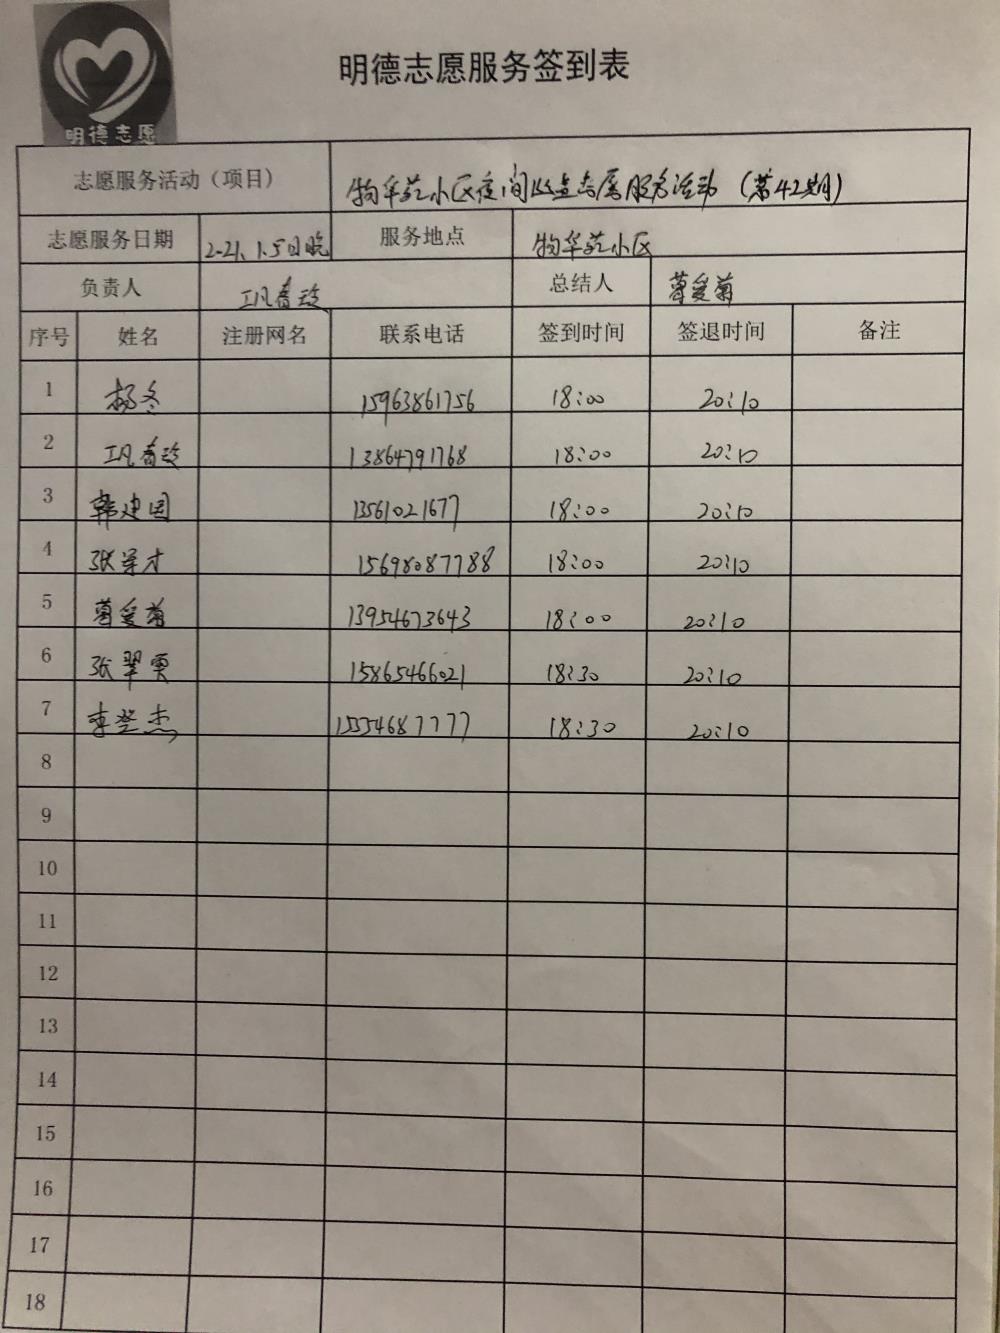 明德志愿
明德志愿服务签到表
志愿服务活动（项目） 物华苑小区夜间 服务活动（第42期）
志愿服务日期 2021.1.5日晚 服务地点 物华苑小区
负责人 巩春玲 总结人 葛爱菊
序号 姓名 注册网名 联系电话 签到时间 签退时间 备注
1 杨冬 15963861756 18:00 20:10
2 巩春玲 13864791768 18:00 20:10
3 韩建国 13561021677 18:00 20:10
4 张学才 15698087788 18:00 20:10
5 葛爱菊 13954673643 18:00 20:10
6 张翠 15865466021 18:30 20:10
7 李登杰 15554687777 18:30 20:10
8
9
10
11
12
13
14
15
16
17
18